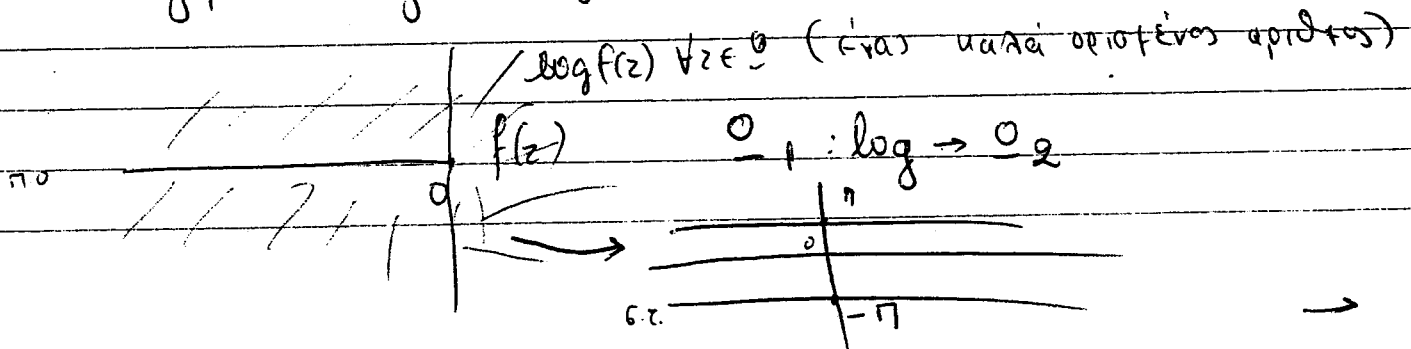 log f(z) ∀z∈Ο (ένας καλά ορισμένος αριθμός)
f(z) Ο₁ : log → Ο₂
πο
0
π
0
σ.τ.
-π